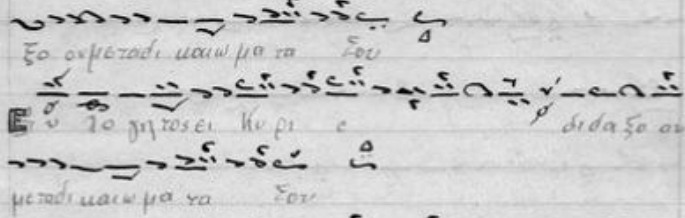 ξο ου με τα δι και ω μα τα Σου
Ε υ λο γη τος ει Κυ ρι ε διδαξο ου
με τα δι και ω μα τα Σου